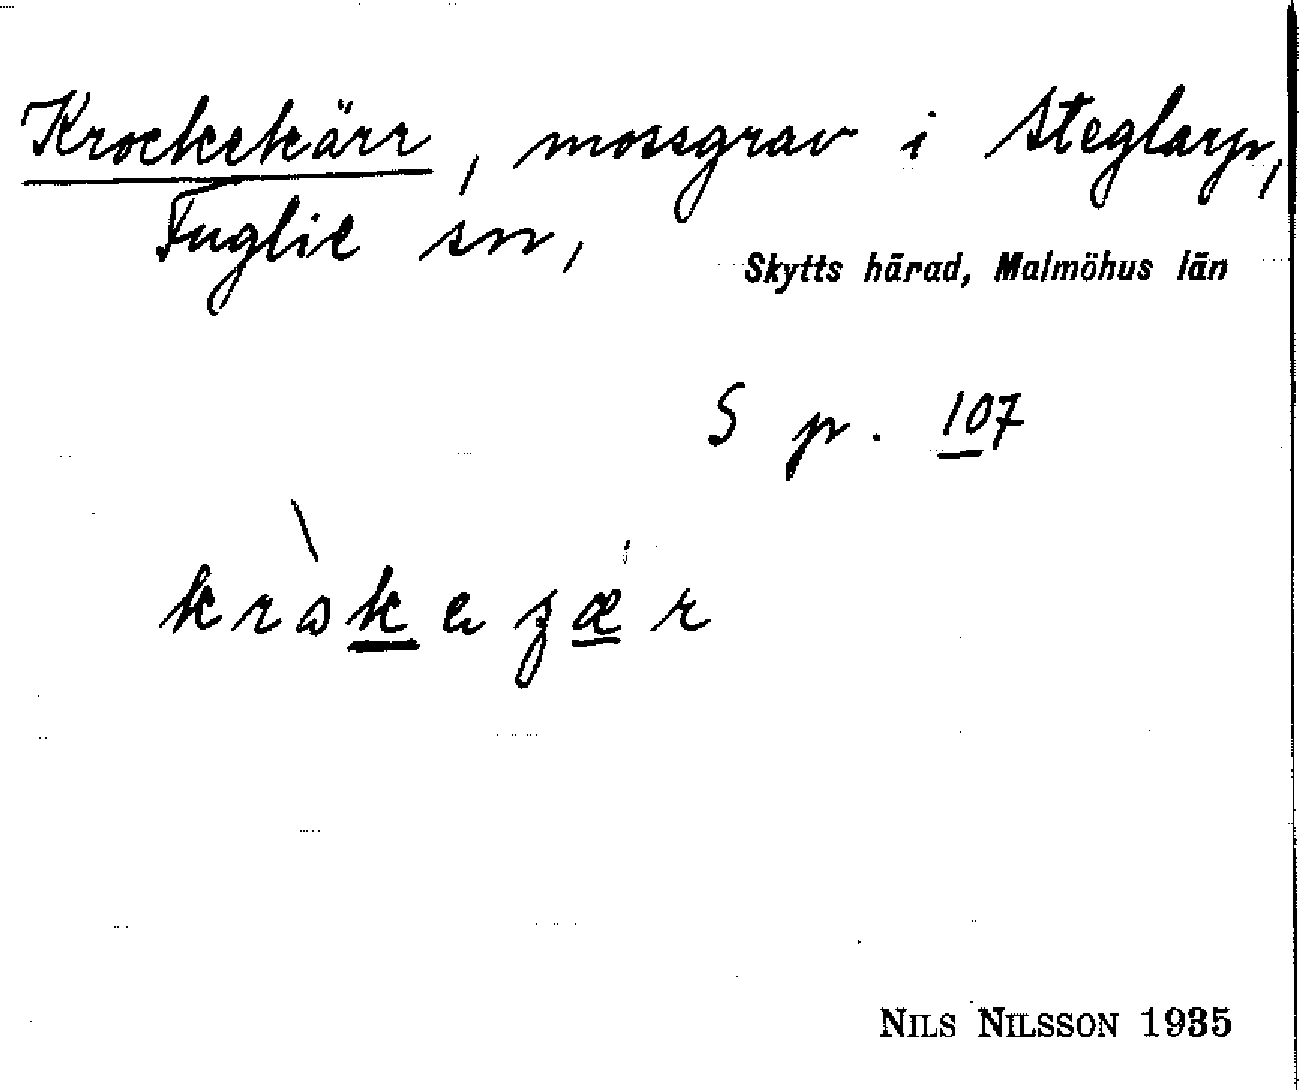 Krockekärr, mossgrav i Steglarp,
Fuglie sn,
Skytts härad, Malmöhus län
S p. 107
NILS NILSSON 1935